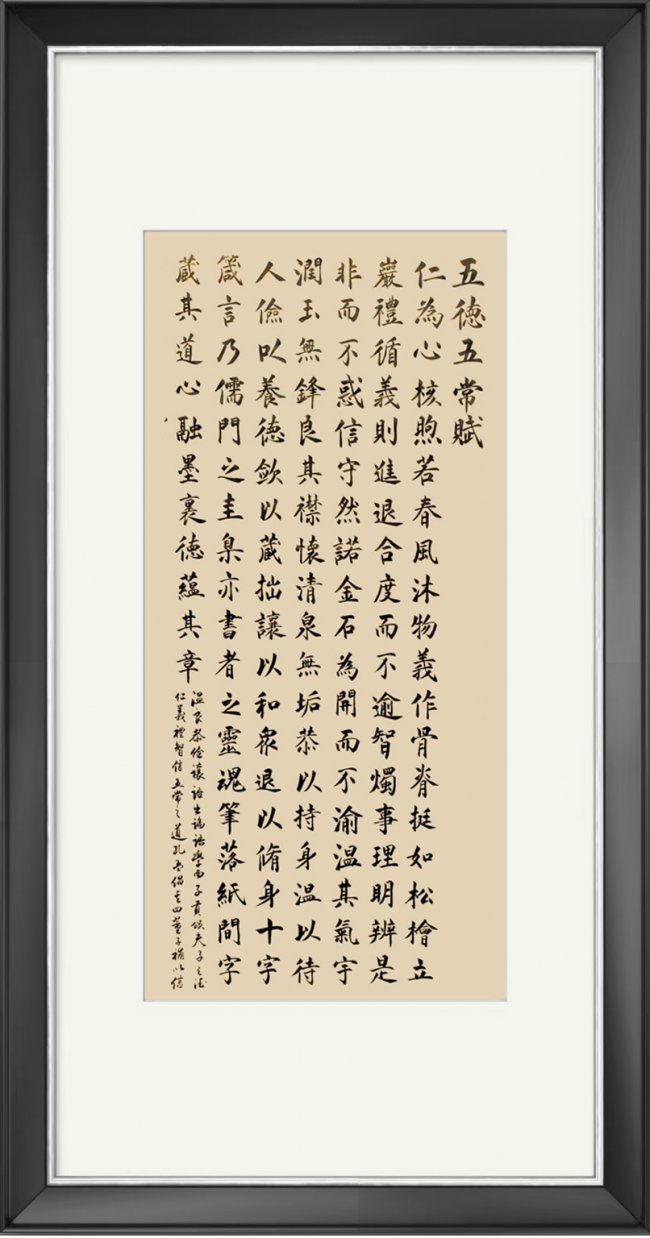 五德五常賦
仁為心核煦若春風沐物義作骨脊挺如松檜立
巖禮循義則進退合度而不逾智燭事理明辨是
非而不惑信守然諾金石為開而不渝溫其氣宇
潤玉無鋒良其襟懷清泉無垢恭以持身溫以待
人儉以養德斂以蔵拙讓以和衆退以脩身十字
箴言乃儒門之圭臬亦書者之靈魂筆落紙間字
蔵其道心融墨裏德蘊其章
溫良恭儉讓語出論語學而子貢贊夫子之德
仁義禮智信五常之道孔孟倡其四董子補以信